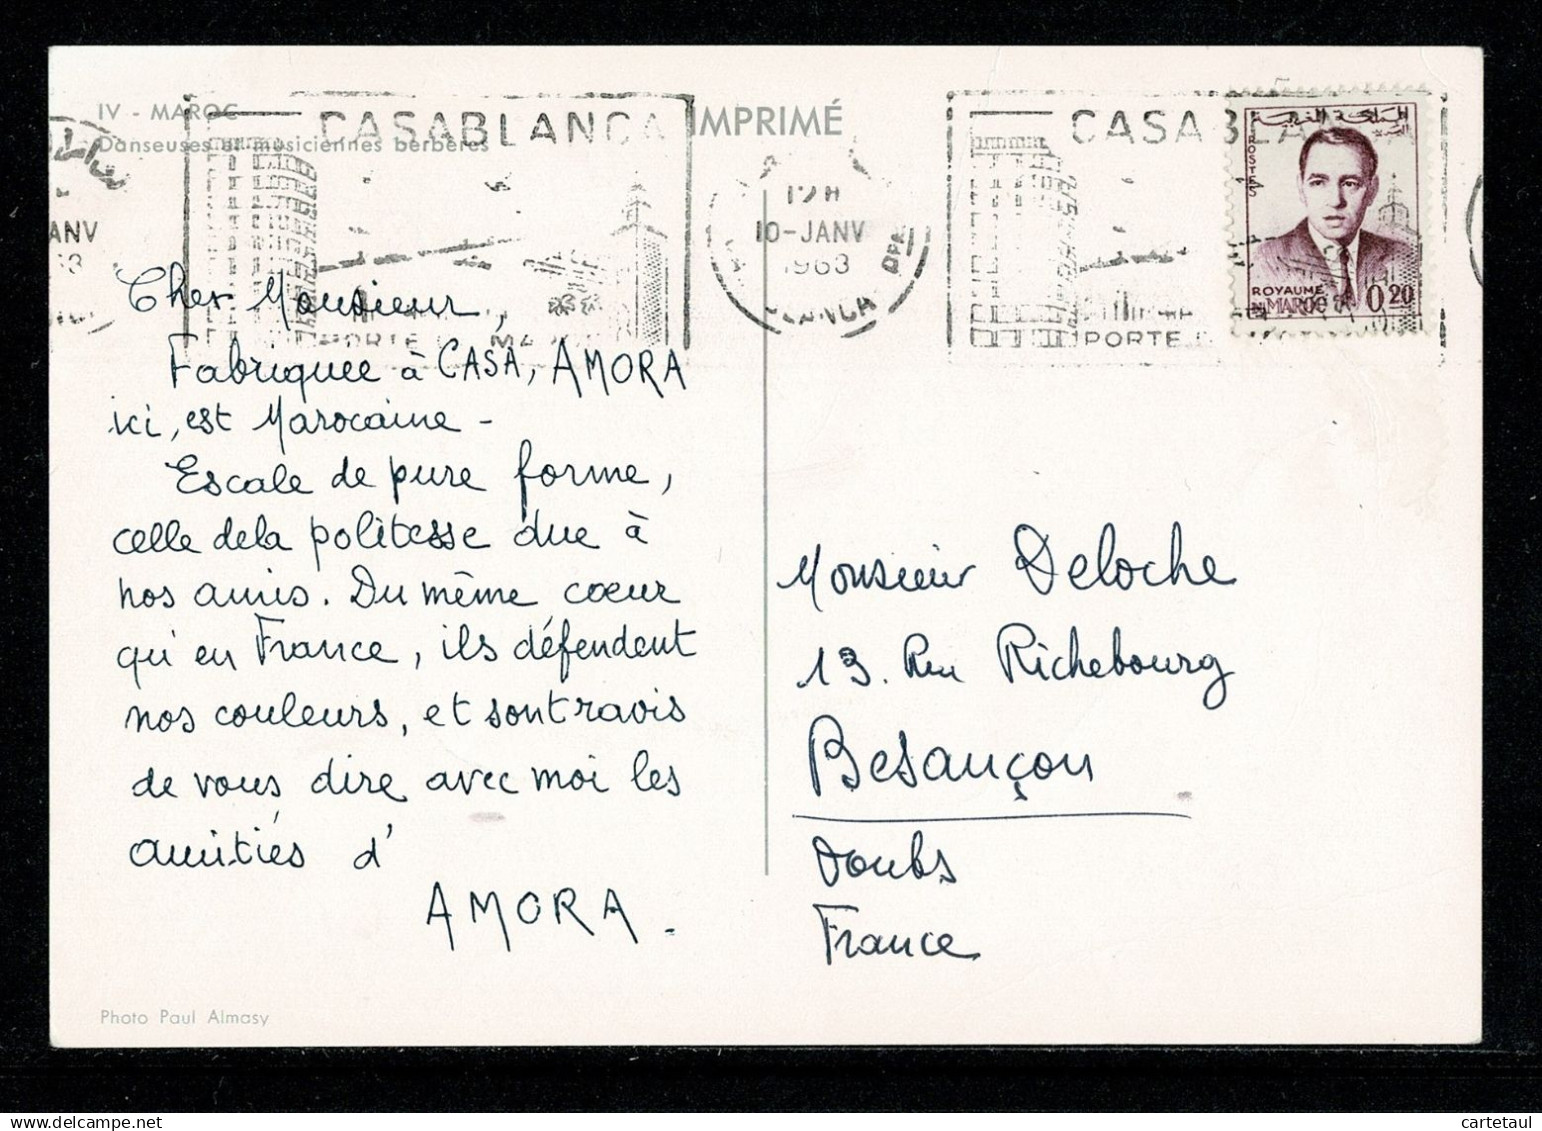 IV - MAROC
Danseuses et musiciennes berbères
CASABLANCA
IMPRIMÉ
CASABLA
12H
10-JANV
1963
ANV
PORTE
PORTE
المملكة المغربية
POSTES
ROYAUME
DU MAROC 0,20
Cher Monsieur,
Fabriquée à CASA, AMORA
ici, est Marocaine -
Escale de pure forme,
celle de la politesse due à
nos amis. Du même cœur
qu'en France, ils défendent
nos couleurs, et sont ravis
de vous dire avec moi les
amitiés d'
AMORA.
Monsieur Deloche
13. Rue Richebourg
Besançon
Doubs
France
Photo Paul Almasy
cartetaul